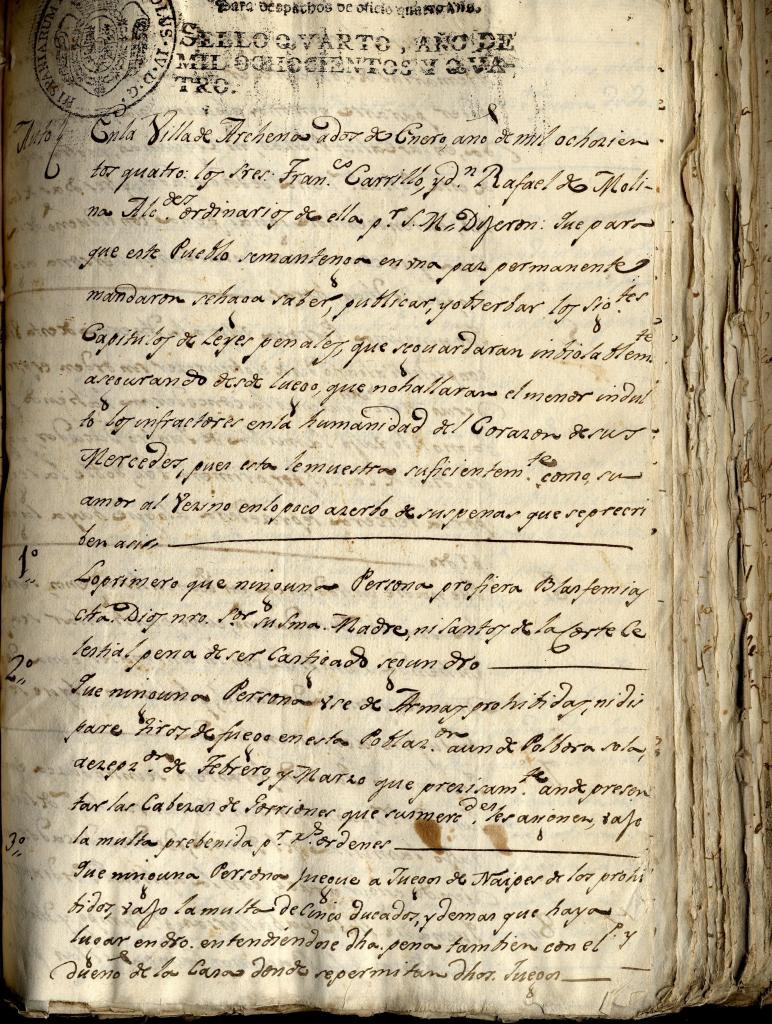 Para despachos de oficio quatro mrs.
HISPANIARUM
CAROLUS·IV·D·G·
SELLO QVARTO, AÑO DE
MIL OCHOCIENTOS Y QVA-
TRO.
Auto
En la Villa de Archena a dos de Enero, ano de mil ochozien
tos quatro: los Sres. Fran.co Carrillo, y dn. Rafael de Moli-
na Alc.des ordinarios de ella pr. S. M. Dijeron: Que para
que este Pueblo semantenga en una paz permanente
mandaron sehaga saber, publicar, y obserbar los sig.tes
Capitulos de Leyes penales, que seguardaran inbiolablem.te
asegurando desde luego, que nohallaran el menor indul
to los infractores enla humanidad del Corazon de sus
Mercedes, pues esta lemuestra suficientem.te como su
amor al Vezino enlopoco azerbo de suspenas que seprecri
ben aqui
1º
Loprimero que ninguna Persona profiera Blasfemias
ctra. Dios nro. Sor. su Sma. Madre, ni Santos de la Corte Ce
lestial pena de ser Castigado segun dro
2º
Que ninguna Persona use de Armas prohibidas, ni dis
pare tiros de fuego enesta Poblaz.on aun de Polbora sola,
aezepz.on de Febrero, y Marzo que prezisam.te ande presen
tar las Cabezas de Gorriones que susmerc.des les asignen, vajo
la multa prebenida pr. Rs. ordenes
3º
Que ninguna Persona juegue a Juegos de Naipes de los prohi
bidos, vajo la multa de Cinco ducados, y demas que haya
lugar endro. entendiendose dha. pena tambien con el
dueño de la Casa donde sepermitan dhos. Juegos